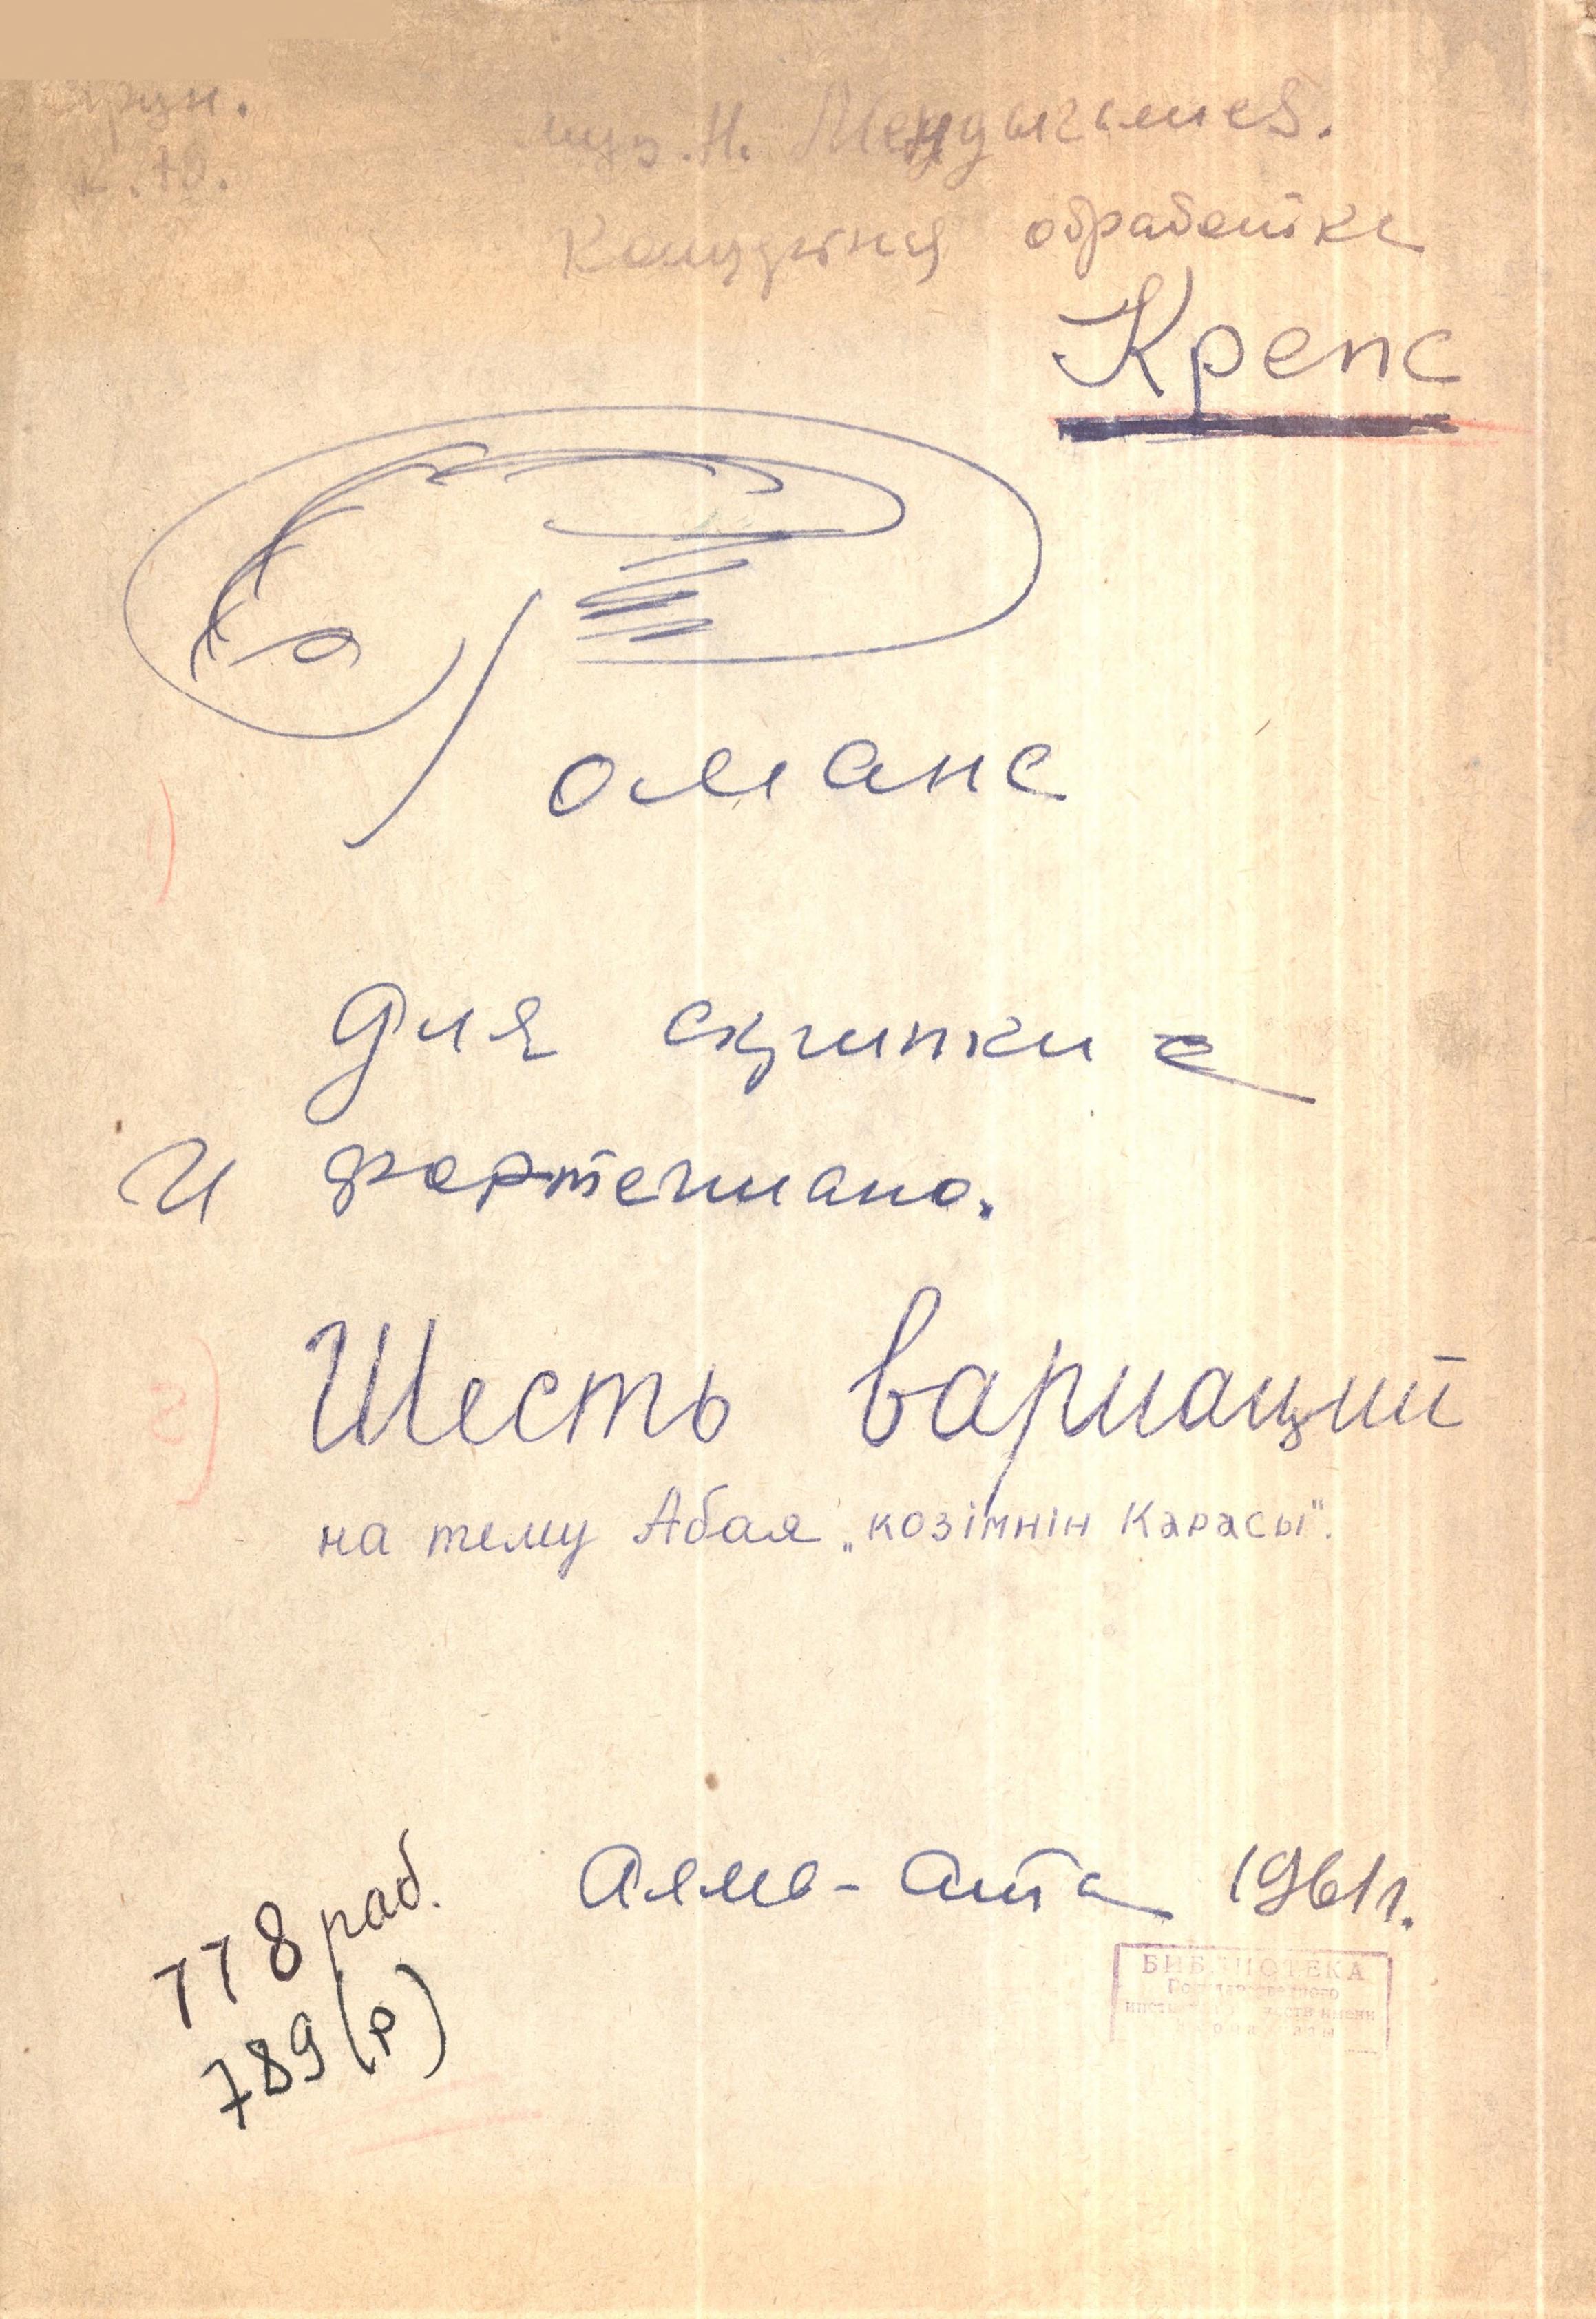 муз. Н. Мендыгалиев.
обработка
Крепс
Романс
1)
для скрипки
и фортепиано.
2) Шесть вариаций
на тему Абая „козімнін Карасы".
778 раб.
789 (р)
Алма-Ата 1961 г.
БИБЛИОТЕКА
Государственного